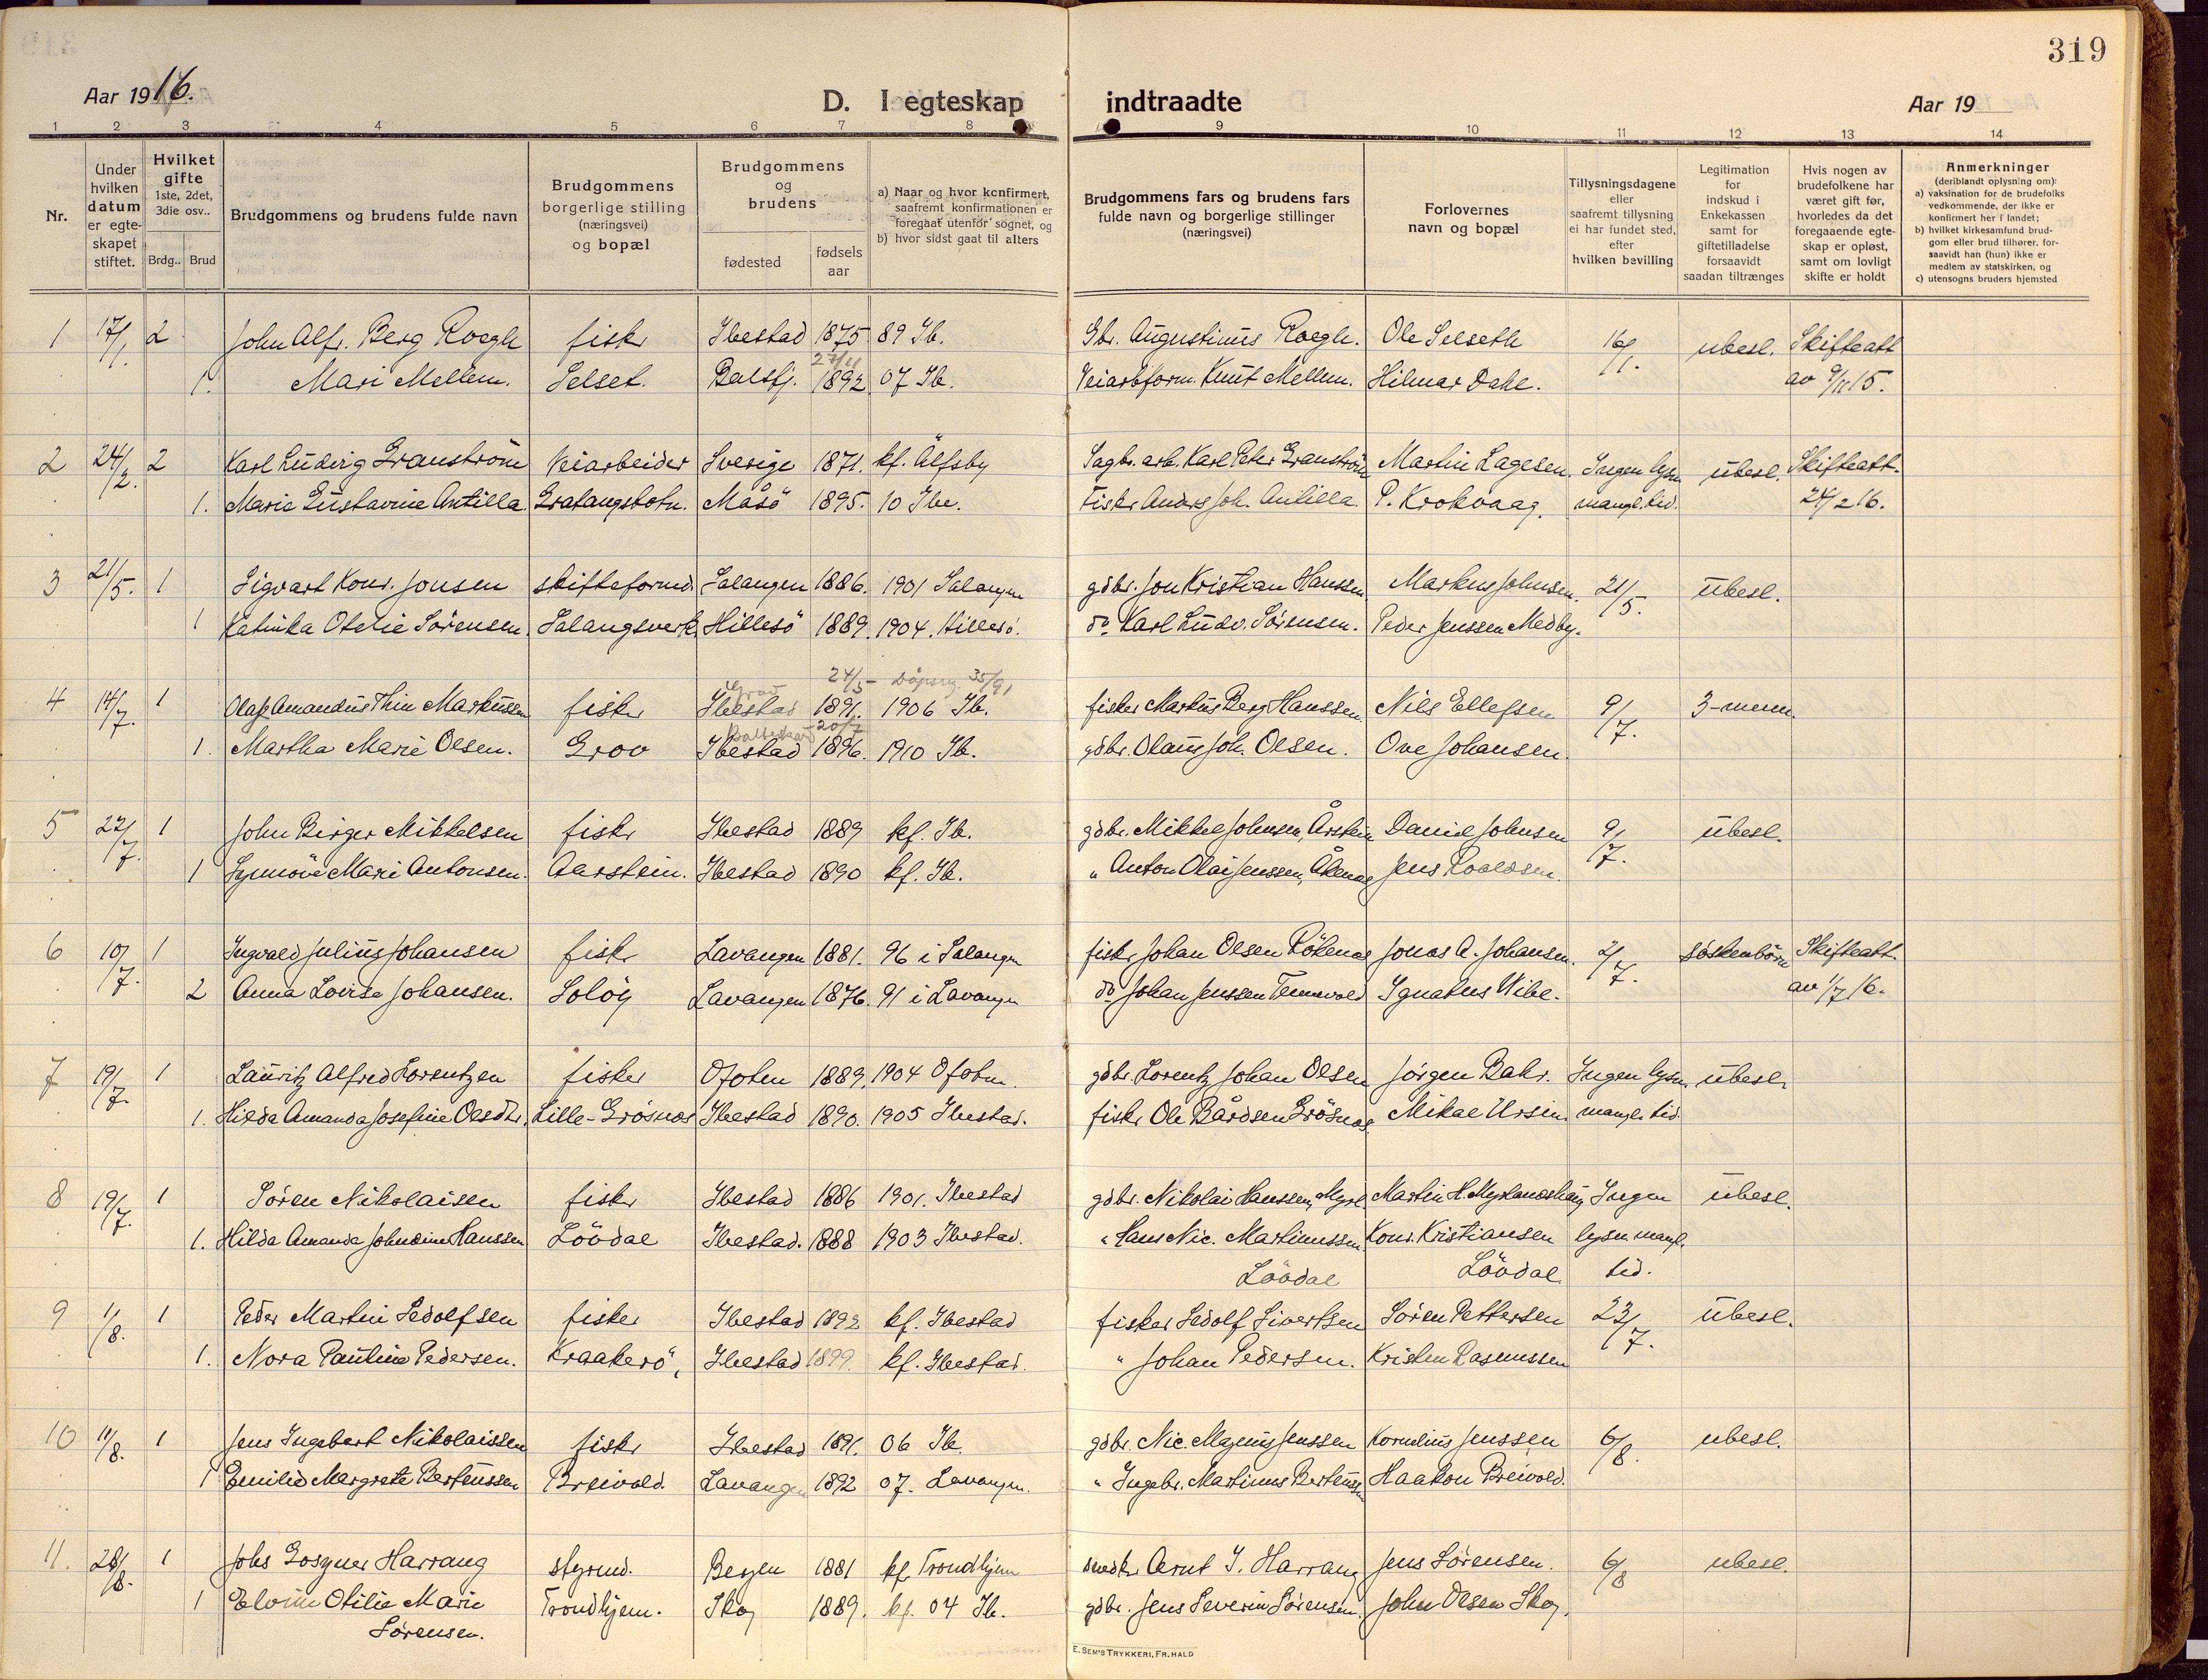 319
Aar 1916.
D. I egteskap indtraadte
Aar 19
1 2 3 4 5 6 7 8 9 10 11 12 13 14
Nr.
Under hvilken datum er egteskapet stiftet.
Hvilket gifte 1ste, 2det, 3die osv..
Brdg.. Brud
Brudgommens og brudens fulde navn
Brudgommens borgerlige stilling (næringsvei) og bopæl
Brudgommens og brudens
fødested
fødsels aar
a) Naar og hvor konfirmert, saafremt konfirmationen er foregaat utenfor sognet, og
b) hvor sidst gaat til alters
Brudgommens fars og brudens fars fulde navn og borgerlige stillinger (næringsvei)
Forlovernes navn og bopæl
Tillysningsdagene eller saafremt tillysning ei har fundet sted, efter hvilken bevilling
Legitimation for indskud i Enkekassen samt for giftetilladelse forsaavidt saadan tiltrænges
Hvis nogen av brudefolkene har været gift før, hvorledes da det foregaaende egteskap er opløst, samt om lovligt skifte er holdt
Anmerkninger
(deriblandt oplysning om):
a) vaksination for de brudefolks vedkommende, der ikke er konfirmert her i landet;
b) hvilket kirkesamfund brudgom eller brud tilhører, forsaavidt han (hun) ikke er medlem av statskirken, og
c) utensogns bruders hjemsted
1 17/1. 2 John Alfr. Berg Roegh fisker Ibestad 1875 89 Ib. Gbr. Augustinus Roegh. Ole Selseth 16/1. ubesl. Skifteatt
27/11
1. Mari Mellem. Selset. Balsfj. 1892. 07 Ib. Veiarbform. Knut Mellem. Hilmar Dahl. av 9/11 15.
2 24/2. 2 Karl Ludvig Granström Veiarbeider Sverige 1871. kf. Älfsby Sagbr. arb. Karl Peter Granström Martin Lagesen. Ingen lysn. ubesl. Skifteatt.
1. Marie Gustavine Antilla. Gratangsbotn. Måsö 1895. 10 Ibe. Fisker Anders Joh. Antilla. P. Krokvaag. mangl. tid. 24/2 16.
3 21/5. 1 Sigvart Konr. Jonsen skifteformd. Salangen 1886. 1901 Salangen gdbr. Jon Kristian Hanssen. Markus Johnsen. 21/5. Ubesl.
1 Katinka Otelie Sörensen. Salangsverk Hillesö 1889. 1904. Hillesö. do Karl Ludv. Sörensen. Peder Jenssen Medby.
Grov 24/5 - Dåpsreg. 35/91
4 14/7. 1 Olaf Amandus Thin Markussen fisker Ibestad 1891. 1906 Ib. fisker Markus Berg Hanssen. Nils Ellefsen 9/7. 3-menn.
20/7
1. Martha Marie Olsen. Grov Ibestad 1896. 1910 Ib. gdbr. Olaus Joh. Olsen. Ove Johansen.
5 22/7. 1 John Birger Mikkelsen fisker Ibestad 1889 kf. Ib. gdbr. Mikkel Johnsen, Årstein Daniel Johnsen 9/7. ubesl.
1 Synnöve Mari Antonsen. Aarstein. Ibestad 1890 kf. Ib. " Anton Olai Jenssen, Jens Roaldsen.
6 10/7. 1 Ingvald Julius Johansen fisker Lavangen 1881. 96 i Salangen fisker Johan Olsen Rökenes Jonas A. Johansen. 2/7. söskenbörn Skifteatt.
2 Anna Lovise Johansen. Solöy Lavangen 1876. 91 i Lavangen do Johan Jenssen Tennevold Ignatius Wibe. av 1/7 16.
7 19/7. 1 Lauritz Alfred Lorentzen fisker Ofoten 1889. 1904 Ofoten. gdbr. Lorentz Johan Olsen Jörgen Bahr. Ingen lysn. ubesl.
1. Hilda Amanda Josefine Olsdtr. Lille-Grösnes Ibestad 1890. 1905 Ibestad. fisker Ole Bårdsen Grösnes. Mikal Ursin. mangl. tid.
8 19/7. 1 Sören Nikolaisen fisker Ibestad 1886 1901. Ibestad gdbr. Nikolai Hanssen, Myrl. Martin H. Myrlandshaug Ingen ubesl.
1. Hilda Amanda Johndine Hanssen Lövdal Ibestad. 1888 1903 Ibestad. " Hans Nic. Martinussen. Konr. Kristiansen lysn mangl.
Lövdal Lövdal tid.
9 1/8. 1 Peder Martin Sedolfsen fisker Ibestad 1892 kf. Ibestad fisker Sedolf Sivertsen Sören Pettersen 23/7. Ubesl.
1. Nora Pauline Pedersen. Kraakerö, Ibestad 1899. kf. Ibestad. " Johan Pedersen. Kristen Rasmussen
10 11/8. 1 Jens Ingebert Nikolaissen fisker Ibestad 1891. 06 Ib. gdbr. Nic. Magnus Jenssen Kornelius Jenssen 6/8. ubesl.
1 Emilie Margrete Berteussen Breivold. Lavangen 1892 07. Lavangen. " Ingebr. Martinus Berteussen Haakon Breivold.
11. 28/8. 1 Johs Harrang styrmd. Bergen 1881 kf. Trondhjem snedker Arnt J. Harrang Jens Sörensen. 6/8 ubesl.
1 Elvine Otilie Marie Trondhjem. Skog 1889. kf. 04 Ib. gdbr. Jens Severin Sörensen. John Olsen Skog.
Sörensen.
E. SEM'S TRYKKERI, FR.HALD